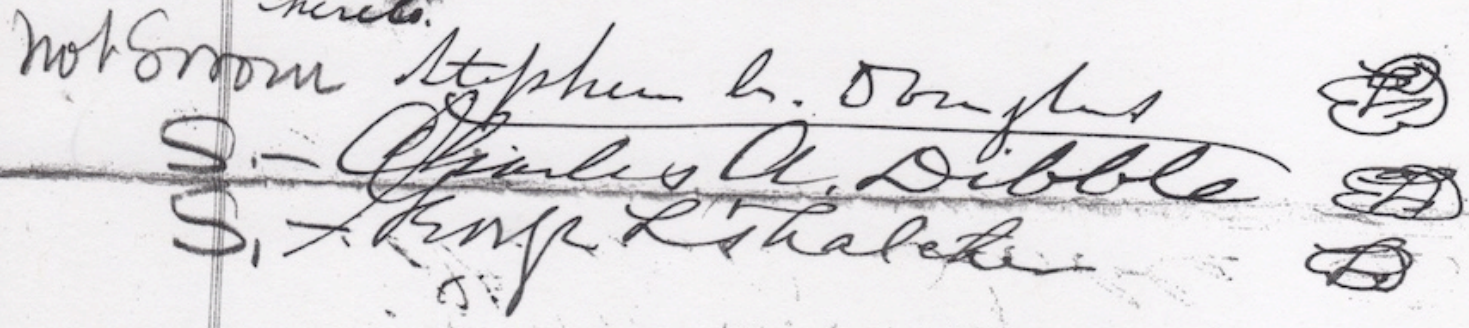 thereto.
Not Sworn Stephen A. Douglas
S. - Charles A. Dibble
S. - George L. Thatcher